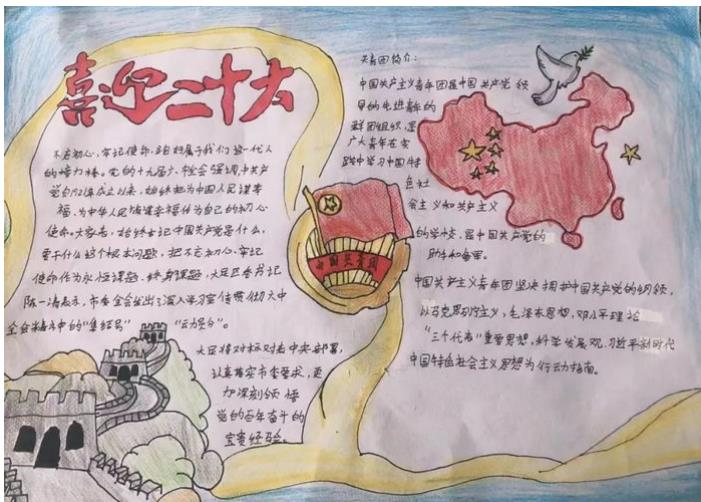 喜迎二十大
不忘初心、牢记使命,跑好属于我们这一代人
的接力棒。党的十九届六中全会强调,中共产
党自1921年成立以来,始终把为中国人民谋幸
福、为中华人民族谋幸福作为自己的初心
使命。大家表,始终牢记中国共产党是什么,
要干什么这个根本问题,把不忘初心、牢记
使命作为永恒课题、终身课题,大足区委书记
陈一清表示,市委全会发出了深入学习宣传贯彻六中
全会精神中的“集结号” “动员令”。
大足将对标对表中央部署,
认真落实市委要求,更
加深刻领悟
党的百年奋斗的
宝贵经验。
共青团简介:
中国共产主义青年团是中国共产党领
导的先进青年的
群团组织,是
广大青年在实
践中学习中国特
色社
会主义和共产主义
的学校,是中国共产党的
助手和后备军。
中国共青团
中国共产主义青年团坚决拥护中国共产党的纲领,
以马克思列宁主义,毛泽东思想,邓小平理论
“三个代表”重要思想,科学发展观,习近平新时代
中国特色社会主义思想为行动指南。